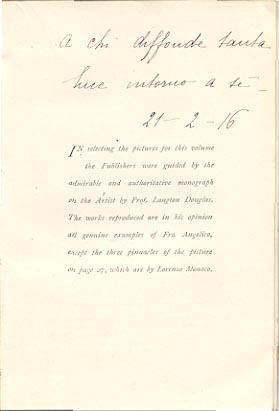 A chi diffonde tanta
luce intorno a sè –
21 – 2 – 16
IN selecting the pictures for this volume
the Publishers were guided by the
admirable and authoritative monograph
on the Artist by Prof. Langton Douglas.
The works reproduced are in his opinion
all genuine examples of Fra Angelico,
except the three pinnacles of the picture
on page 27, which are by Lorenzo Monaco.